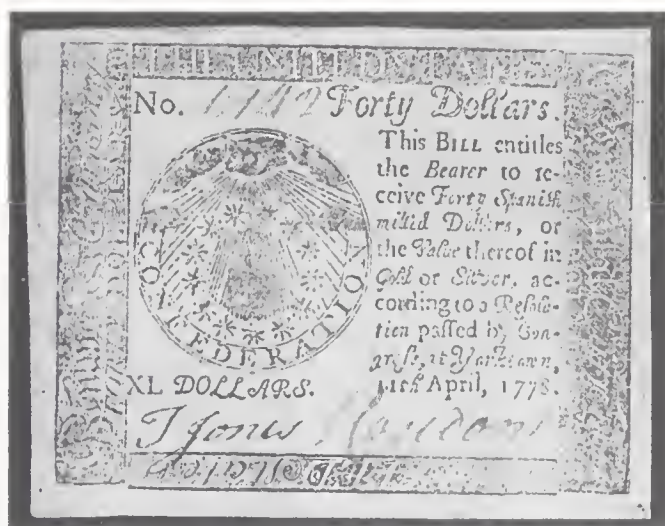 THE UNITED STATES
No. Forty Dollars.
This BILL entitles
the Bearer to re-
ceive Forty Spanish
milled Dollars, or
the Value thereof in
Gold or Silver, ac-
cording to a Resolu-
tion passed by Con-
gress, at Yorktown,
11th April, 1778.
CONFEDERATION
XL DOLLARS.
J Jones